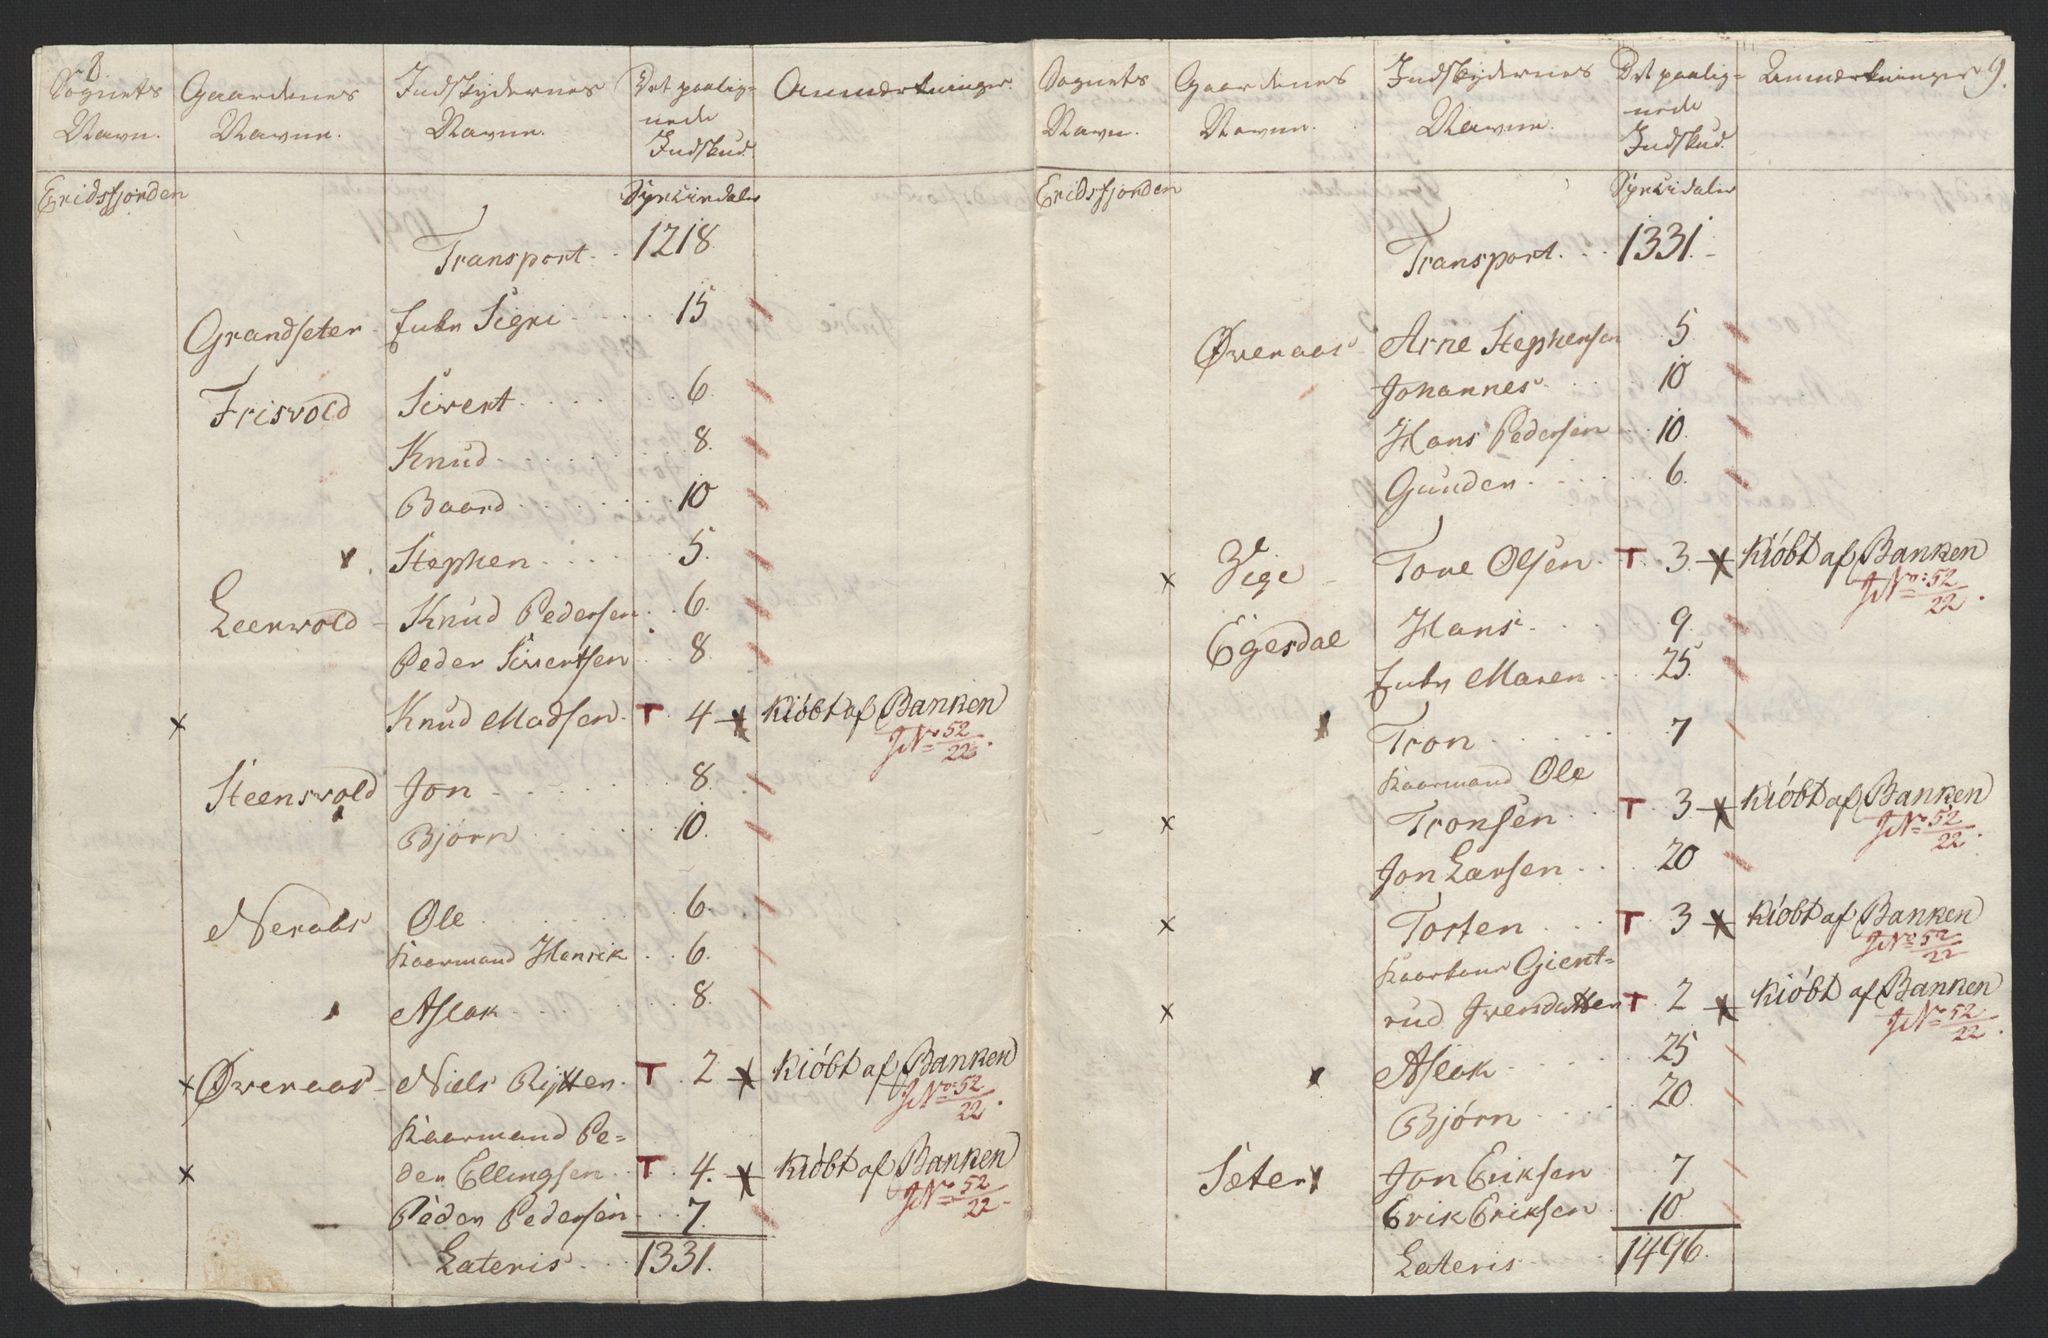 8
Sognets Navn. Gaardenes Navne. Indskydernes Navne. Det paalignede Indskud. Anmærkninger.
Eridsfjorden Sprecidaler
Transport. 1218.
Grandseter Enke Sigri 15
Frisvold Sivert 6.
Knud 8.
Baard 10
x Stephen 5.
Leervold Knud Pedersen 6.
Peder Sivertsen 8.
x Knud Madsen. T. 4 x Kiøbt af Banken
JNo 52/22.
Steensvold Jon 8.
Bjørn 10.
Neraas Ole 6
Kaarmand Henrik 6.
Aslak 8.
x Øveraas Niels Rytter. T 2 x Kiøbt af Banken
JNo: 52/22.
Kaarmand Pe=
x der Ellingsen T. 4. x Kiøbt af Banken
JNo 52/22
Peder Pedersen 7.
Lateris 1331.
9.
Sognets Navn. Gaardenes Navne. Indskydernes Navne. Det paalignede Indskud. Anmærkninger
Eridsfjorden
Transport. 1331.
Øveraas Arne Stephensen 5
Johannes 10
Hans Pedersen 10.
Gunder 6.
x Vige Tove Olsen T. 3 x Kiøbt af Banken
JNo: 52/22.
Egesdal Hans 9.
Enke Maren 25.
x Tron 7
Kaarmand Ole
x Tronsen T. 3 x Kiøbt af Banken
JNo 52/22.
Jon Larsen 20
x Torsten T 3 x Kiøbt af Banken
JNo 52/22
Kaarkone Giert=
x rud Iversdatter T 2 x Kiøbt af Banken
JNo 52/22.
x Aslak 25
Bjørn 20.
Sæter x Jon Eriksen 7
Erik Eriksen 10.
Lateris 1496.